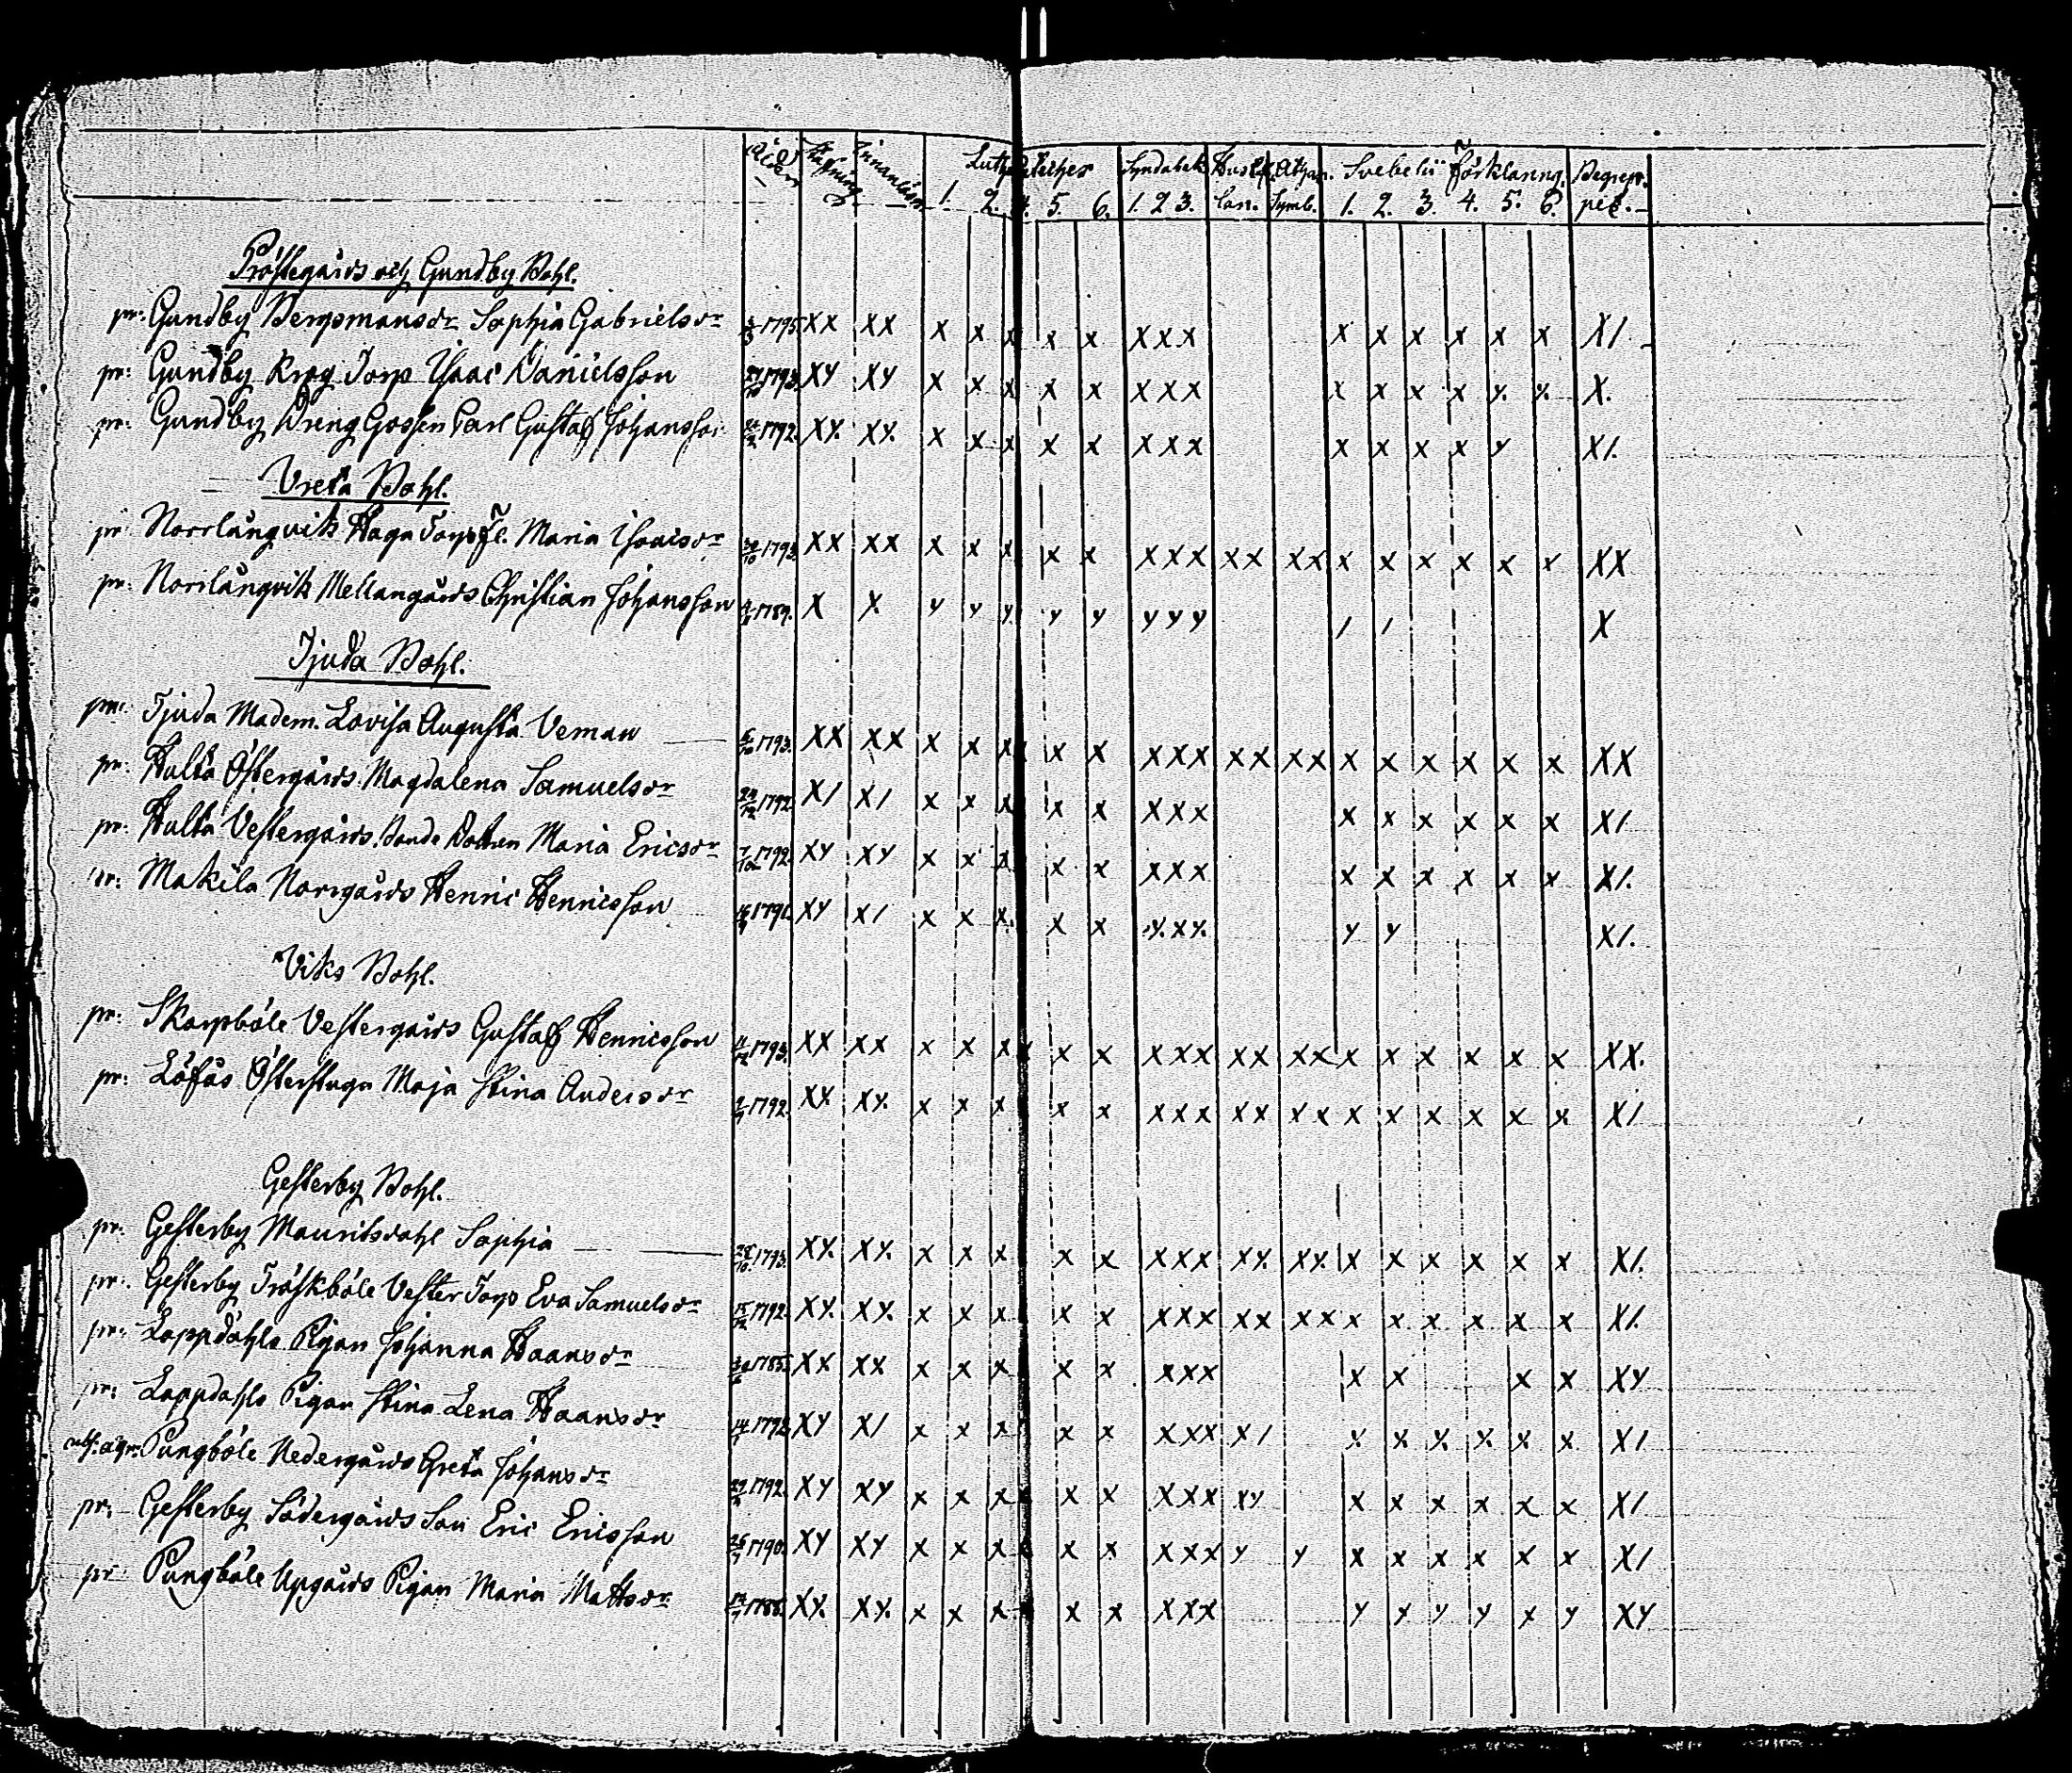 Åldern Stafning Innanläsn. Luth. Cateches Syndabek. Hustafl. Athan. Svebelii förklaring. Begrep
1. 2. 4. 5. 6. 1. 2 3. lan. Symb. 1. 2. 3. 4. 5. 6. pet.
Pröstegårds och Gundby Bohl.
pr: Gundby Bergsmansdr Sophia Gabrielsdr 1795. XX XX x x x x x x x x x x x x x x X/.
pr: Gundby Krog Torp Isaac Danielsson 1793. XY XY x x x x x x x x x x x x y. y. X.
pr: Gundby Dreng Gossen Carl Gustaf Johansson 1792. XY. XY. x x x x x x x x x x x x y X/.
Vreta Bohl.
pr: Norrlångvik Haga Torps fl. Maria Isacsdr 30/10 1793. XX XX x x x x x x x x xx xx x x x x x x XX
pr: Norrlångvik Mellangårds Christian Johansson 1789. X X y y y. y y y y y / / X
Tjuda Bohl.
pr: Tjuda Madem. Lovisa Augusta Veman 1793. XX XX x x x x x x x x xx xx x x x x x x XX
pr: Hulta Östergårds Magdalena Samuelsdr 24/12 1792. X/ X/ x x x x x x x x x x x x x x X/
pr: Hulta Vestergårds Bonde Dottren Maria Ericsdr 7/10 1792. XY XY x x x x x x x x x x x x x x X/.
pr: Makila Norrgårds Henric Henricsson 1791. XY X/ x x x. x x y. x y. y y X/.
Viks Bohl.
pr: Skarpböle Vestergårds Gustaf Henricsson 11/12 1793. XX XX x x x x x x x x xx xx x x x x x x XX.
pr: Löfås Österstugu Maja Stina Andersdr 1792. XX XY. x x x x x x x x xx xx x x x x x x X/
Gesterby Bohl.
pr: Gesterby Mauritsdahl Sophia 1793. XY. XY. x x x x x x x x xy. xy. x x x x x x X/.
pr: Gesterby Tröskböle Vester Torp Eva Samuelsdr 15/12 1792. XY. XY. x x x x x x x x xx xx x x x x x x X/.
pr: Loppdahls Pigan Johanna Haansdr 1785. XX XX x x x x x x x x x x x x XY
pr: Loppdahls Pigan Stina Lena Haansdr 1792. XY X/ x x x x x x x x x/ y x y. y. x x X/
Pungböle Nedergårds Greta Johansdr 1792. XY XY x x x x x x x x xy x x x x x x X/
pr: Gesterby Södergårds Son Eric Ericsson 1790. XY XY x x x x x x x x y y x x x x x x X/
pr: Pungböle Uppgårds Pigan Maria Mattsdr 1788. XY. XY. x x x x x x x x y y y y x y XY